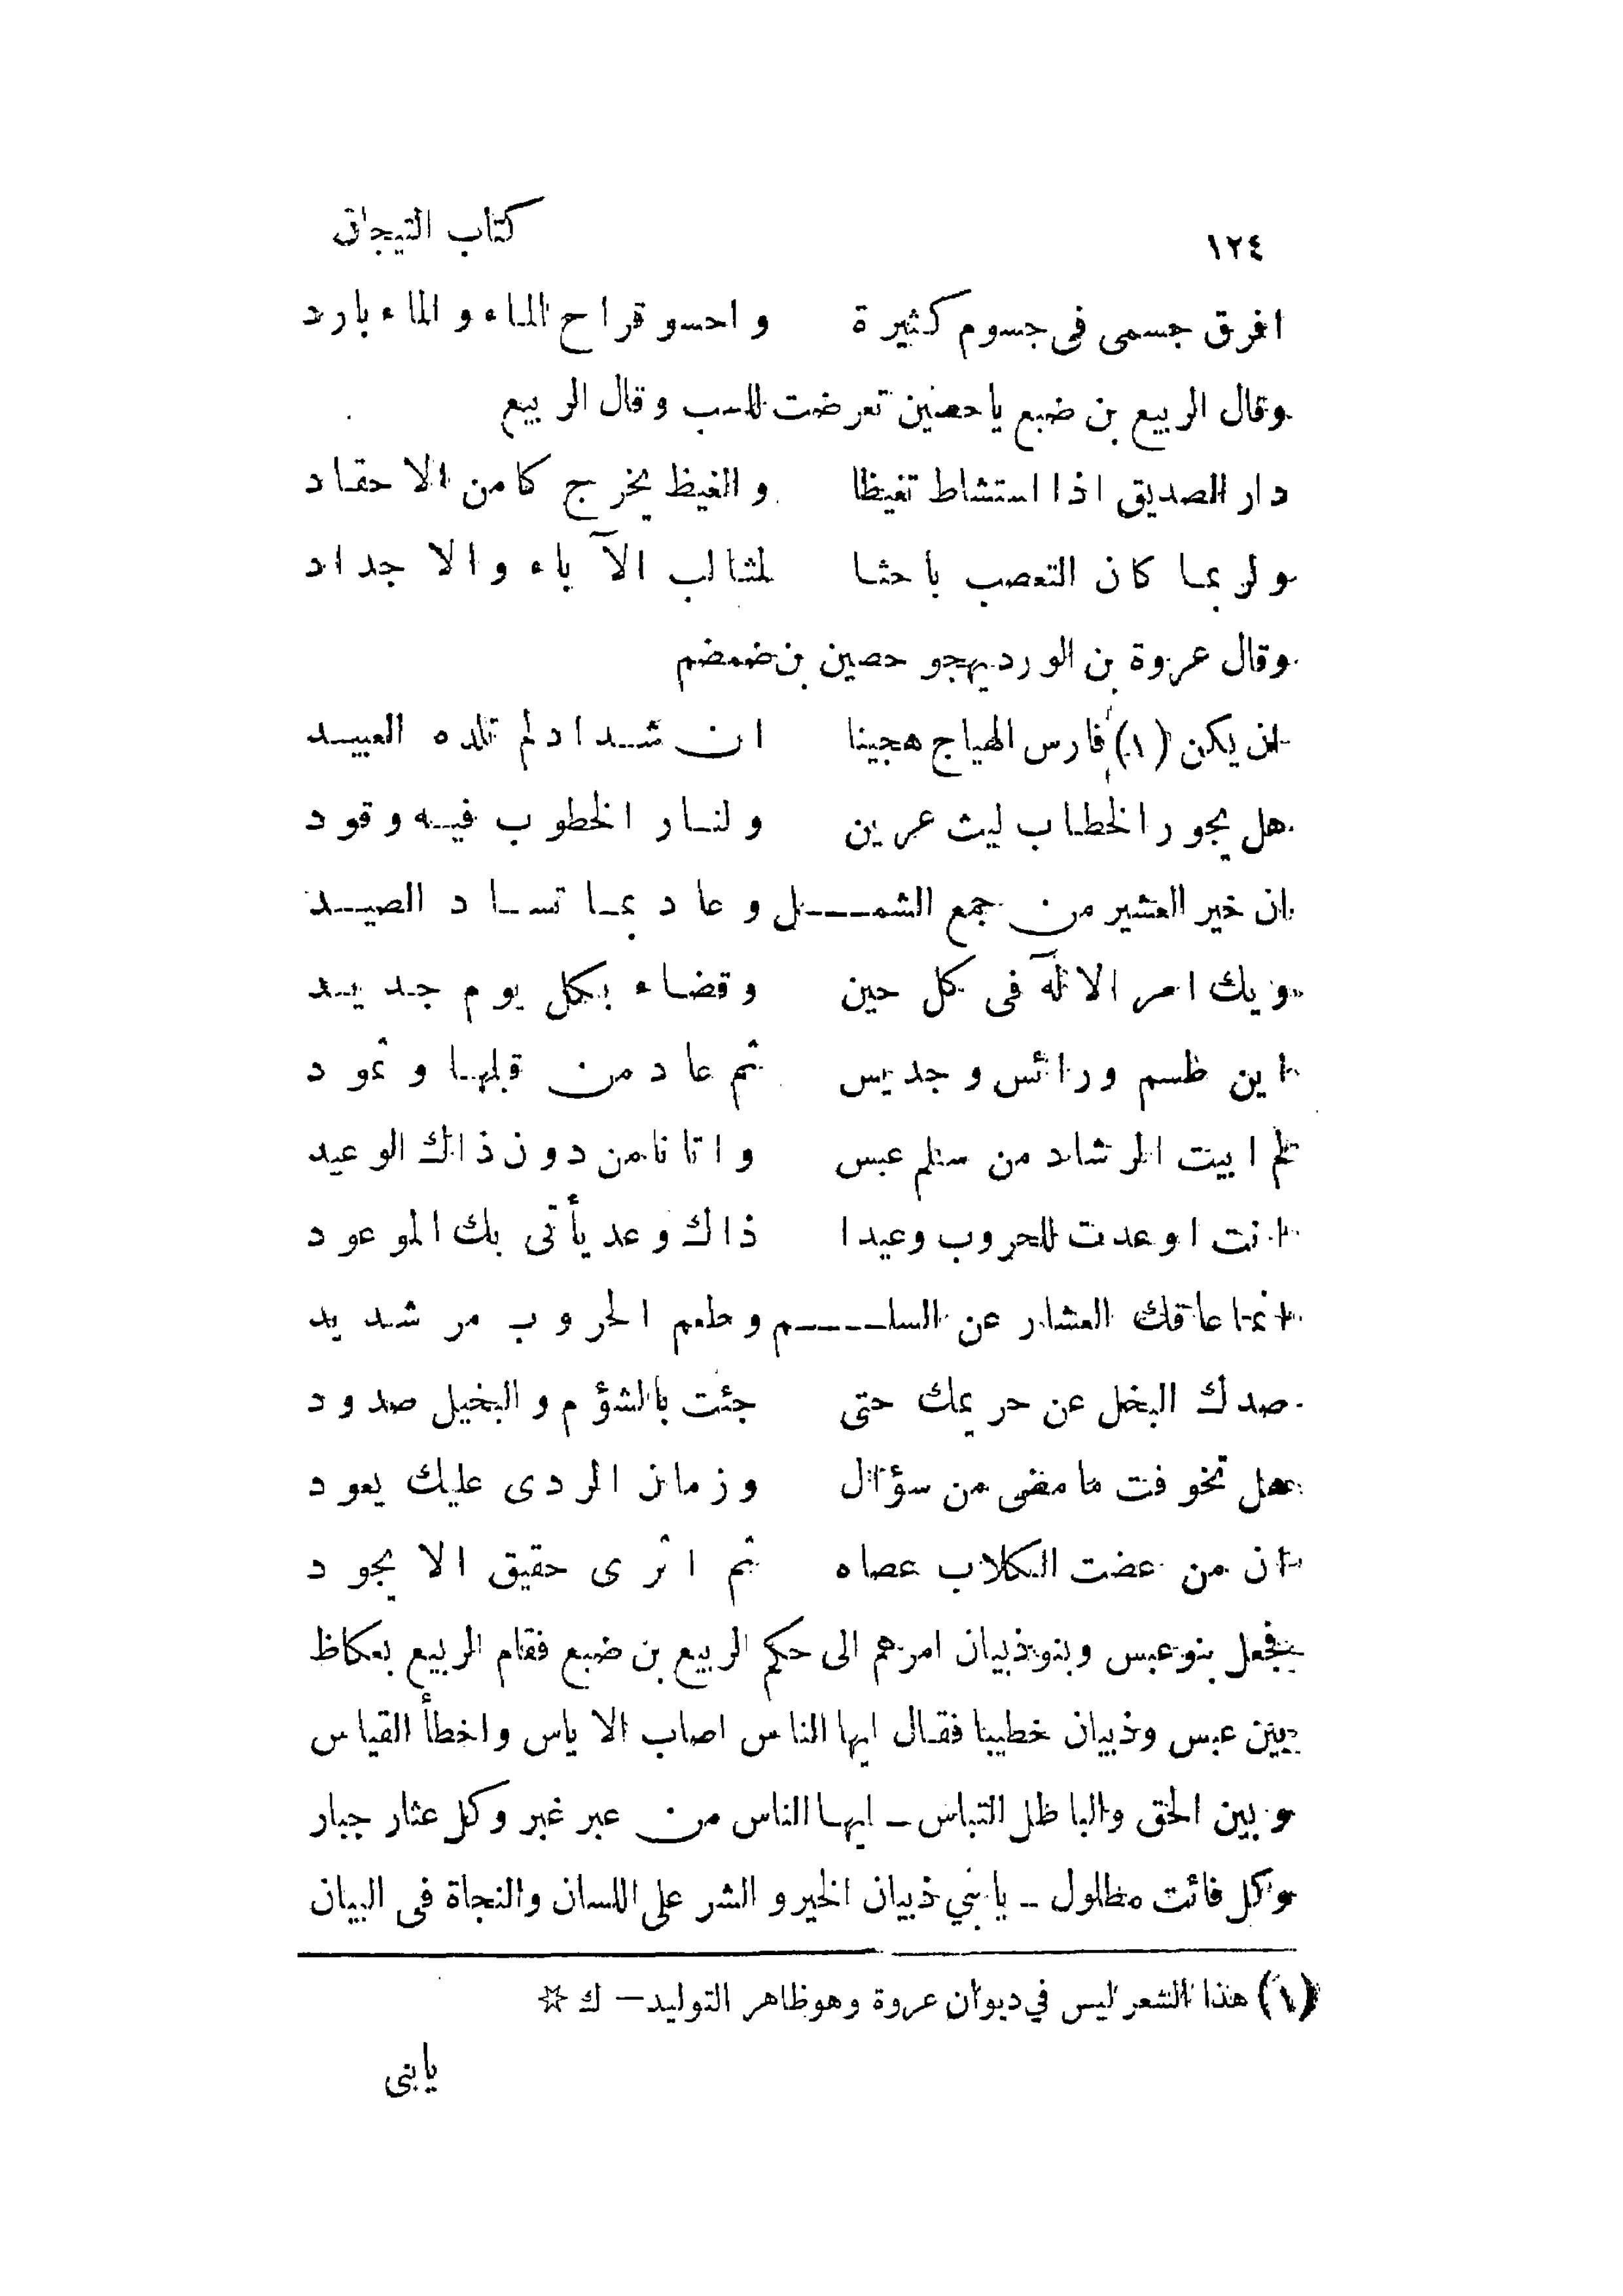 ١٢٤ كتاب التيجان
افرق جسمى فى جسوم كثيرة واحسو قراح الماء والماء بارد
وقال الربيع بن ضبع ياحصين تعرضت للسب وقال الربيع
دار الصديق اذا استشاط تغيظا والغيظ يخرج كامن الاحقاد
ولربما كان التعصب باحثا لمثالب الآباء والاجداد
وقال عروة بن الورد يهجو حصين بن ضمضم
ان يكن (١) فارس الهياج هجينا ان شداد لم تلده العبيد
هل يجور الخطاب ليث عرين ولنار الخطوب فيه وقود
ان خير العشير من جمع الشمــل وعاد بما تساد الصيد
ويك امر الالٓه فى كل حين وقضاء بكل يوم جديد
اين طسم ورائس وجديس ثم عاد من قبلها وثمود
لم ابيت الرشاد من سلم عبس واتانا من دون ذاك الوعيد
انت اوعدت للحروب وعيدا ذاك وعد يأتى بك الموعود
انما عاقك العشار عن السلــم وطعم الحروب مر شديد
صدك البخل عن حريمك حتى جئت بالشؤم والبخيل صدود
هل تخوفت ما مضى من سؤال وزمان الردى عليك يعود
ان من عضت الكلاب عصاه ثم اثرى حقيق الا يجود
فجعل بنو عبس وبنو ذبيان امرهم الى حكم الربيع بن ضبع فقام الربيع بعكاظ
بين عبس وذبيان خطيبا فقال ايها الناس اصاب الاياس واخطأ القياس
وبين الحق والباطل التباس ــ ايها الناس من عبر غبر وكل عثار جبار
وكل فائت مطلول ــ يا بني ذبيان الخير والشر على اللسان والنجاة فى البيان
(١) هذا الشعر ليس في ديوان عروة وهو ظاهر التوليد — ك ☆
يابنى